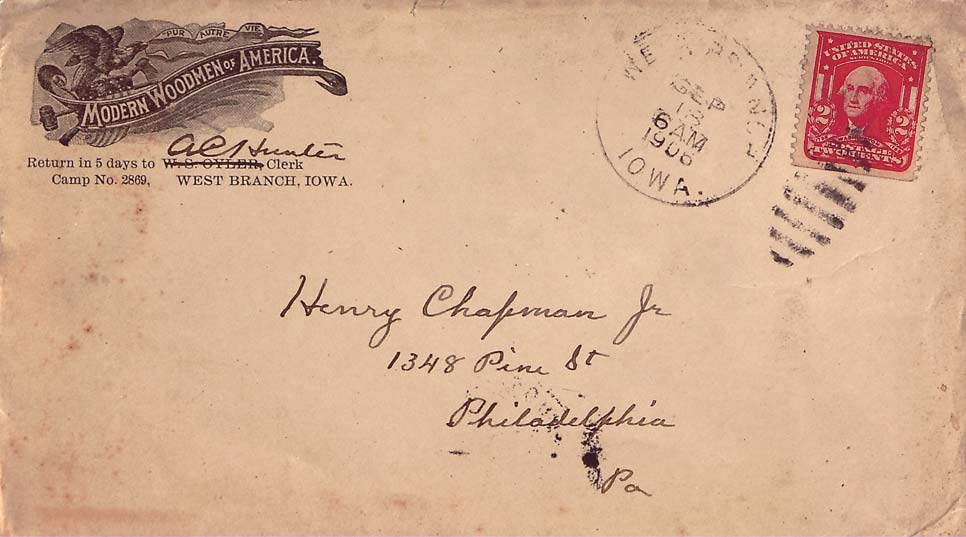 PUR AUTRE VIE
MODERN WOODMEN OF AMERICA.
A C Hunter
Return in 5 days to W. S. OYLER, Clerk
Camp No. 2869, WEST BRANCH, IOWA.
WEST BRANCH
SEP
18
6 AM
1906
IOWA.
UNITED STATES
OF AMERICA
2 2
POSTAGE
TWO CENTS
Henry Chapman Jr
1348 Pine St
Philadelphia
Pa